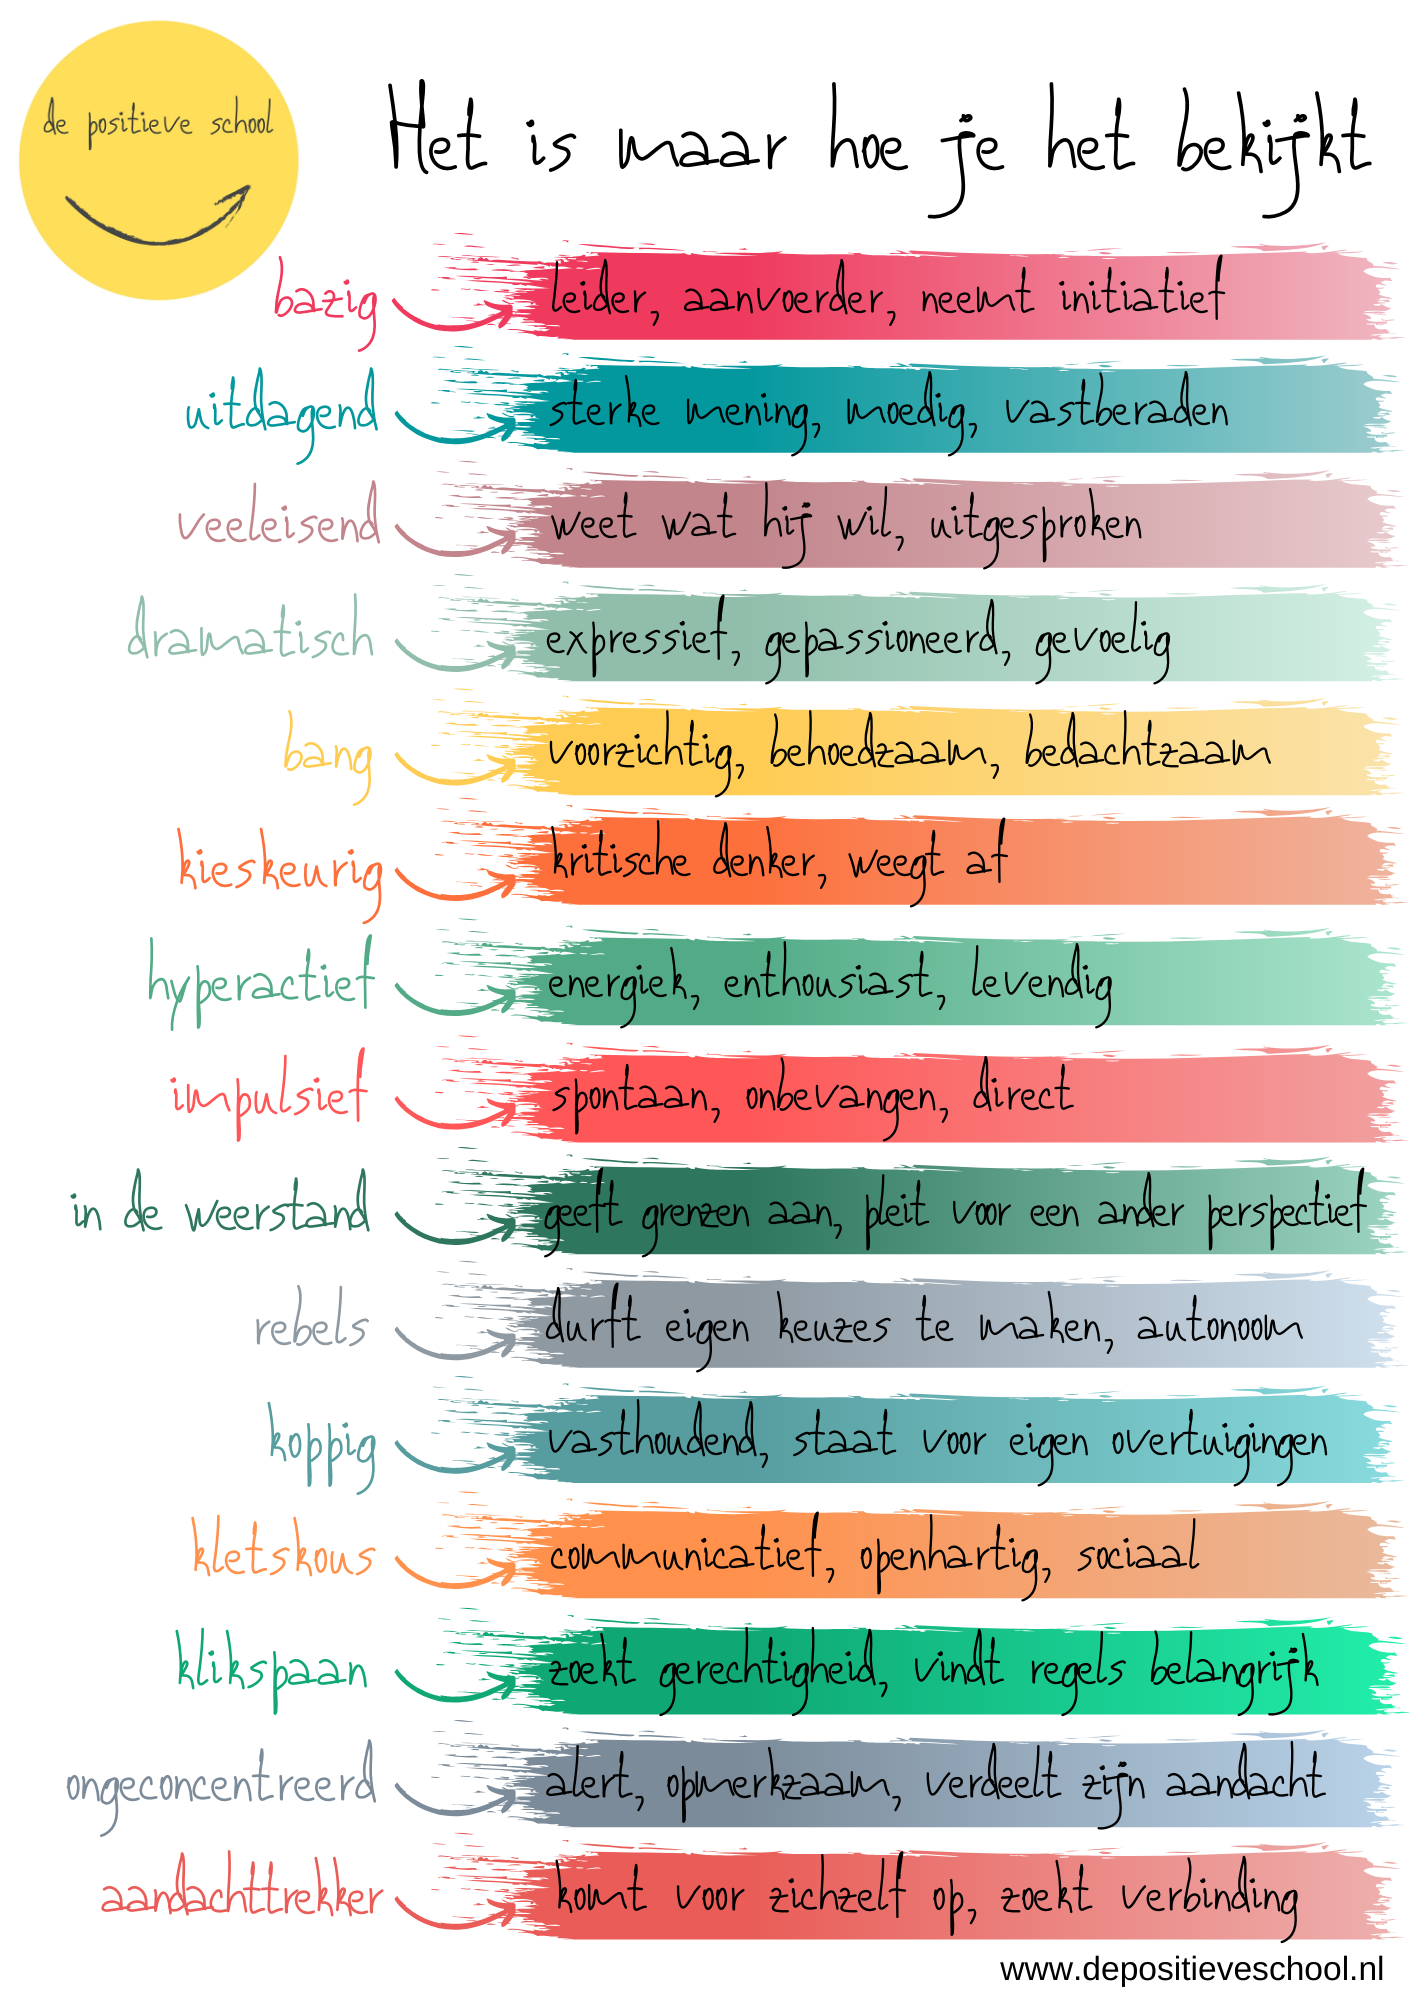 de positieve school
Het is maar hoe je het bekijkt
bazig leider, aanvoerder, neemt initiatief
uitdagend sterke mening, moedig, vastberaden
veeleisend weet wat hij wil, uitgesproken
dramatisch expressief, gepassioneerd, gevoelig
bang voorzichtig, behoedzaam, bedachtzaam
kieskeurig kritische denker, weegt af
hyperactief energiek, enthousiast, levendig
impulsief spontaan, onbevangen, direct
in de weerstand geeft grenzen aan, pleit voor een ander perspectief
rebels durft eigen keuzes te maken, autonoom
koppig vasthoudend, staat voor eigen overtuigingen
kletskous communicatief, openhartig, sociaal
klikspaan zoekt gerechtigheid, vindt regels belangrijk
ongeconcentreerd alert, opmerkzaam, verdeelt zijn aandacht
aandachttrekker komt voor zichzelf op, zoekt verbinding
www.depositieveschool.nl